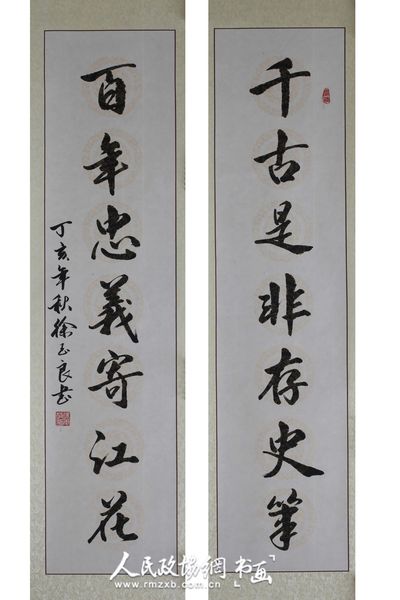 千古是非存史筆
百年忠義寄江花
丁亥年秋徐玉良書
人民政協網·书画
www.rmzxb.com.cn